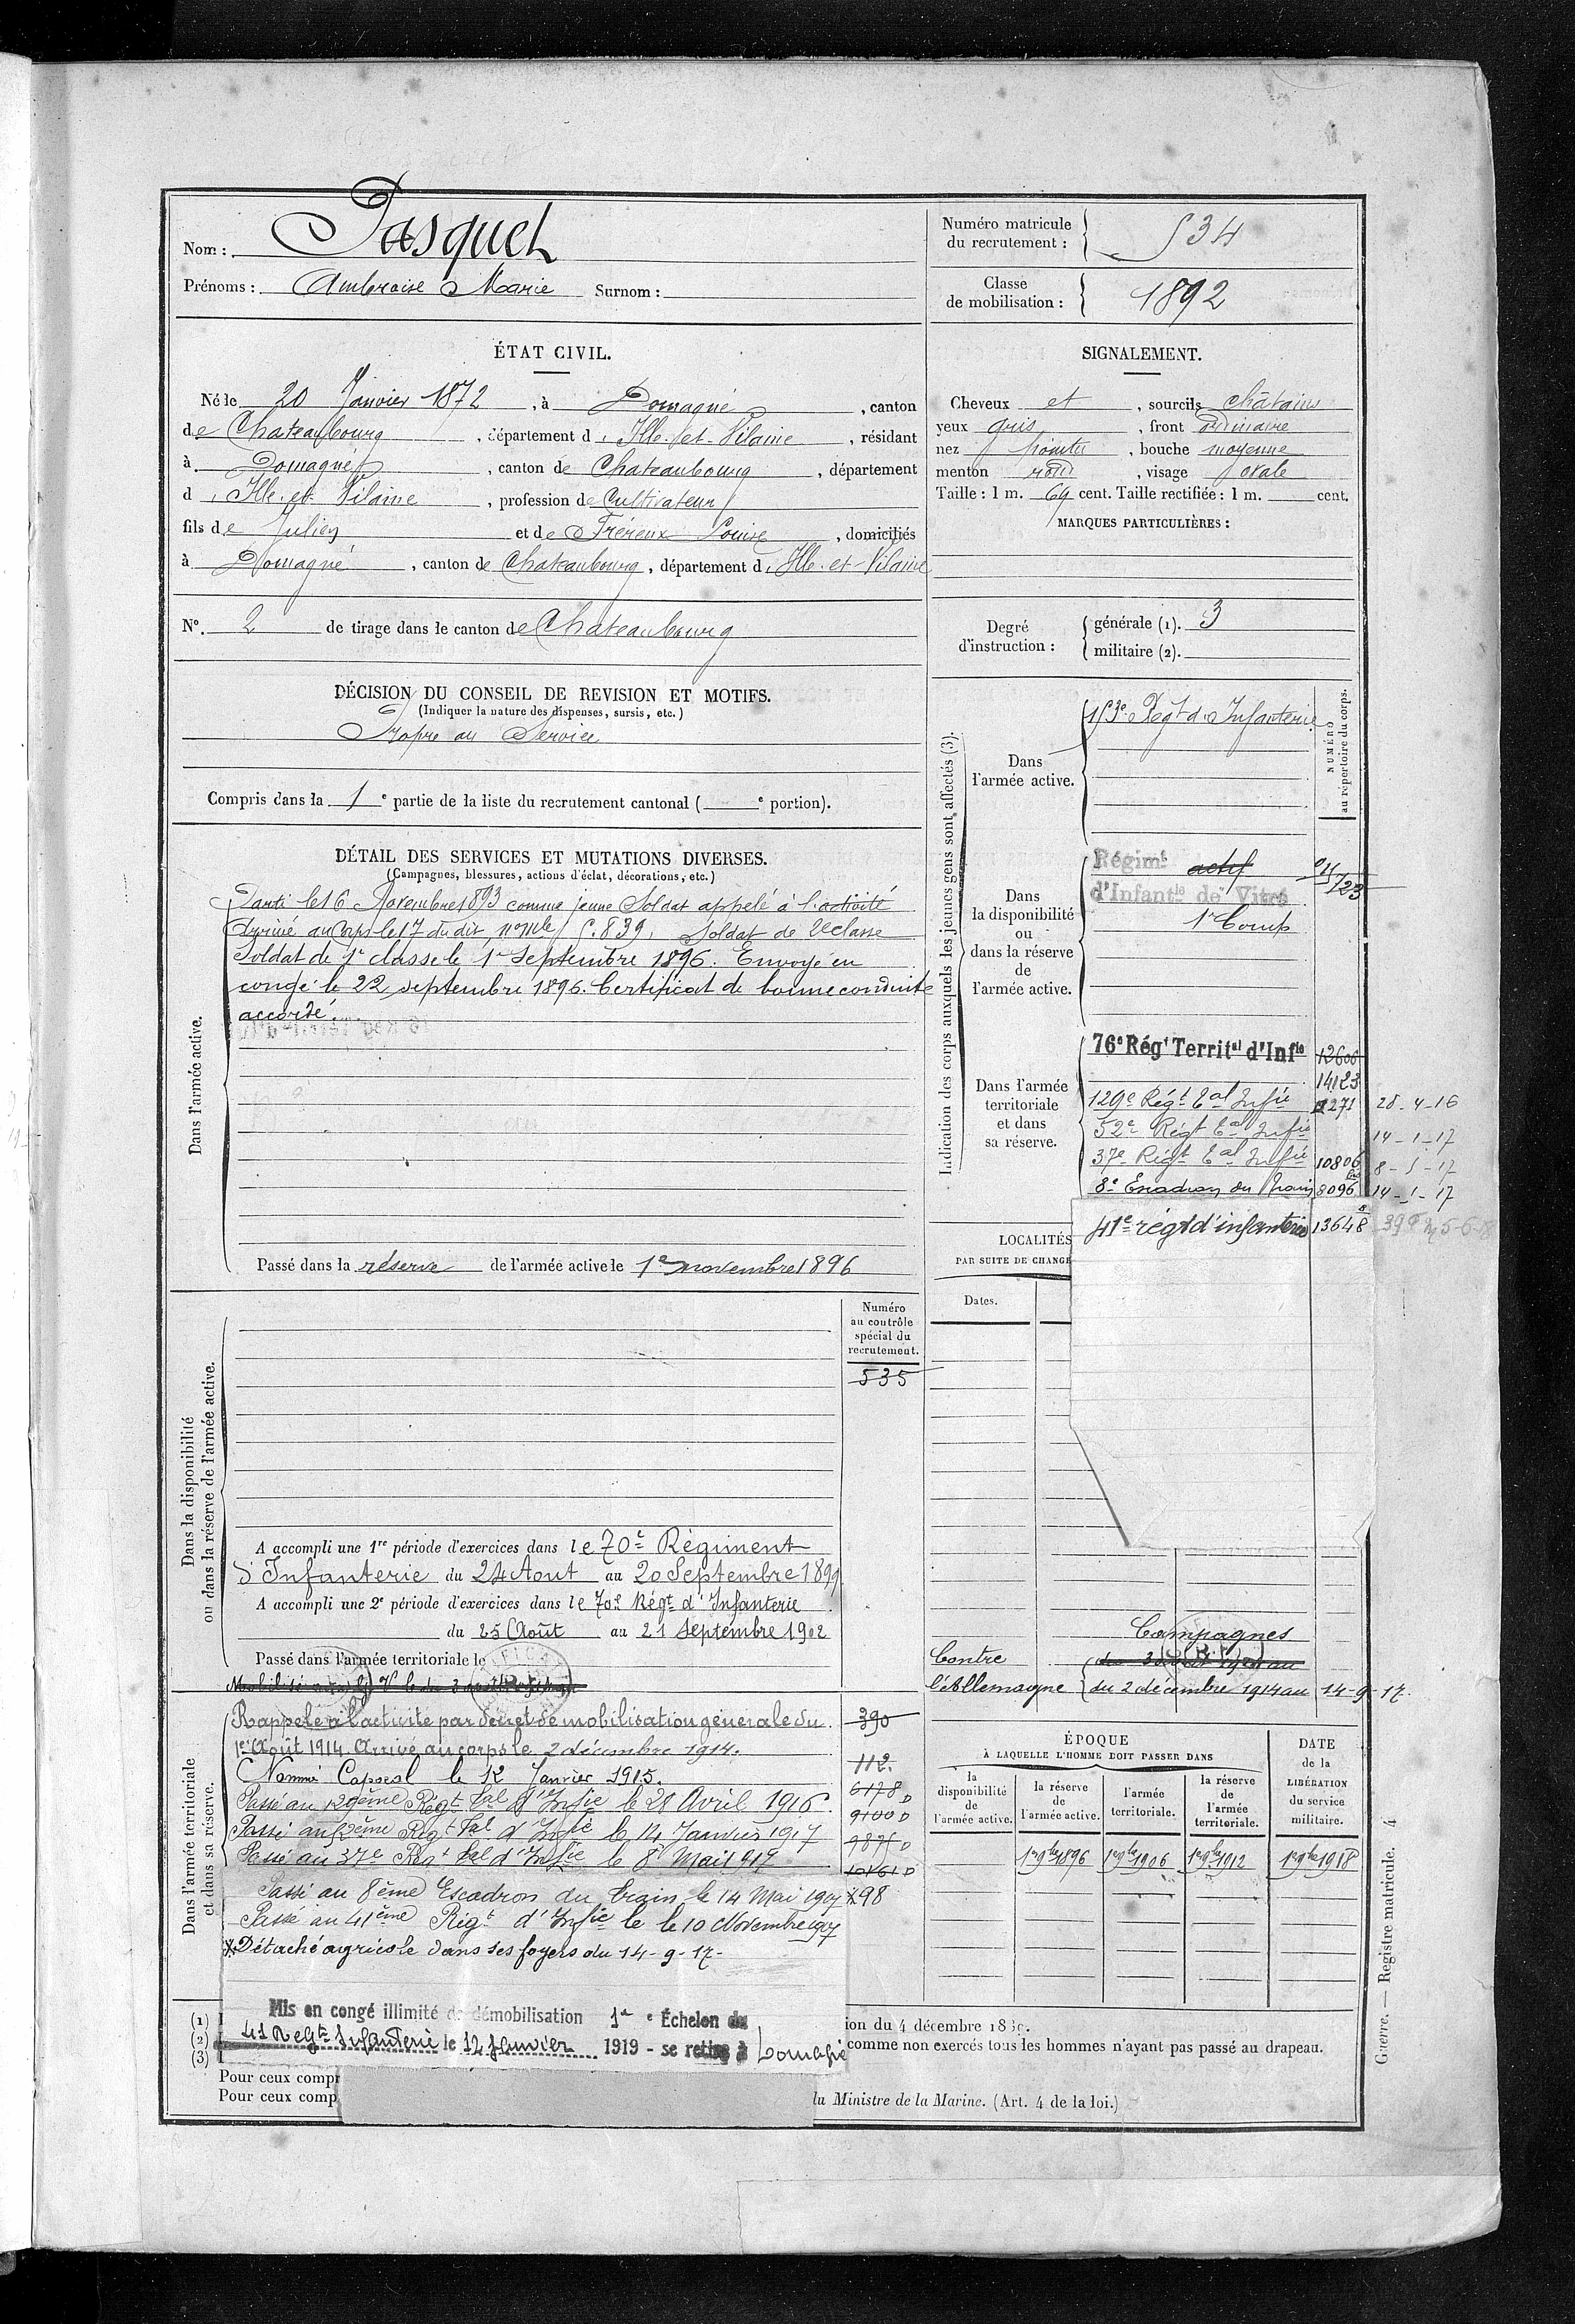 Nom : Pasquet
Prénoms : Ambroise Marie Surnom :
Numéro matricule du recrutement : 534
Classe de mobilisation : 1892
ÉTAT CIVIL.
Né le 20 Janvier 1872, à Domagné, canton
de Chateaubourg, département d'Ille-et-Vilaine, résidant
à Domagné, canton de Chateaubourg, département
d'Ille-et-Vilaine, profession de Cultivateur
fils de Julien et de Fréreux Louise, domiciliés
à Domagné, canton de Chateaubourg, département d'Ille-et-Vilaine
N°. 2 de tirage dans le canton de Chateaubourg
SIGNALEMENT.
Cheveux et, sourcils châtains
yeux gris, front ordinaire
nez pointu, bouche moyenne
menton rond, visage ovale
Taille : 1 m. 69 cent. Taille rectifiée : 1 m. cent.
MARQUES PARTICULIÈRES :
Degré d'instruction :
générale (1). 3
militaire (2).
DÉCISION DU CONSEIL DE REVISION ET MOTIFS.
(Indiquer la nature des dispenses, sursis, etc.)
Propre au Service
Compris dans la 1e partie de la liste du recrutement cantonal ( e portion).
DÉTAIL DES SERVICES ET MUTATIONS DIVERSES.
(Campagnes, blessures, actions d'éclat, décorations, etc.)
Dans l'armée active.
Parti le 16 Novembre 1893 comme jeune Soldat appelé à l'activité
Arrivé au Corps le 17 du dit, n° mle 5.839, Soldat de 2e classe
Soldat de 1e classe le 1er Septembre 1896. Envoyé en
congé le 22 septembre 1896. Certificat de bonne conduite
accordé.
Passé dans la réserve de l'armée active le 1er novembre 1896
Indication des corps auxquels les jeunes gens sont affectés (3).
NUMÉRO
au répertoire du corps.
Dans l'armée active.
153e Régt d'Infanterie
Dans la disponibilité ou dans la réserve de l'armée active.
Régimt actif
d'Infantie de Vitré
Dans l'armée territoriale et dans sa réserve.
76e Régt Territal d'Infie 12600
14123
129e Régt Tal Infie 1271 28-4-16
52e Régt Tal Infie 14-1-17
37e Régt Tal Infie 10806 8-5-17
8e Escadron du Train 8096 14-1-17
41e régt d'infanterie 13648
LOCALITÉS
PAR SUITE DE CHANGE
Dates.
Dans la disponibilité
ou dans la réserve de l'armée active.
Numéro
au contrôle
spécial du
recrutement.
535
A accompli une 1re période d'exercices dans le 70e Régiment
d'Infanterie du 24 Aout au 20 Septembre 1899
A accompli une 2e période d'exercices dans le 70e Régt d'Infanterie
du 25 Août au 21 Septembre 1902
Passé dans l'armée territoriale le
Campagnes
Contre
l'Allemagne du 2 décembre 1914 au 14-9-17.
Dans l'armée territoriale
et dans sa réserve.
Rappelé à l'activité par décret de mobilisation générale du 390
1er Août 1914. Arrivé au corps le 2 décembre 1914.
112.
Nommé Caporal le 12 Janvier 1915.
6178 D
Passé au 129ème Régt Tal d'Infie le 28 Avril 1916.
9100 D
Passé au 52ème Régt Tal d'Infie le 14 Janvier 1917
9875 D
Passé au 37e Régt Tal d'Infie le 8 Mai 1917
10161 D
Passé au 8ème Escadron du Train le 14 Mai 1917 *98
Passé au 41ème Régt d'Infie le le 10 Novembre 1917
*Détaché agricole dans ses foyers du 14-9-17-
Mis en congé illimité de démobilisation 1er e Échelon du
41 Regt Infanterie le 12 Janvier 1919 - se retire à Domagné
ÉPOQUE
À LAQUELLE L'HOMME DOIT PASSER DANS
la disponibilité de l'armée active.
la réserve de l'armée active.
l'armée territoriale.
la réserve de l'armée territoriale.
DATE de la LIBÉRATION du service militaire.
1er 9bre 1896 1er 9bre 1906 1er 9bre 1912 1er 9bre 1918
(1)
(2)
(3)
ion du 4 décembre 18
comme non exercés tous les hommes n'ayant pas passé au drapeau.
Pour ceux compr
Pour ceux comp
du Ministre de la Marine. (Art. 4 de la loi.)
Guerre. — Registre matricule. 4